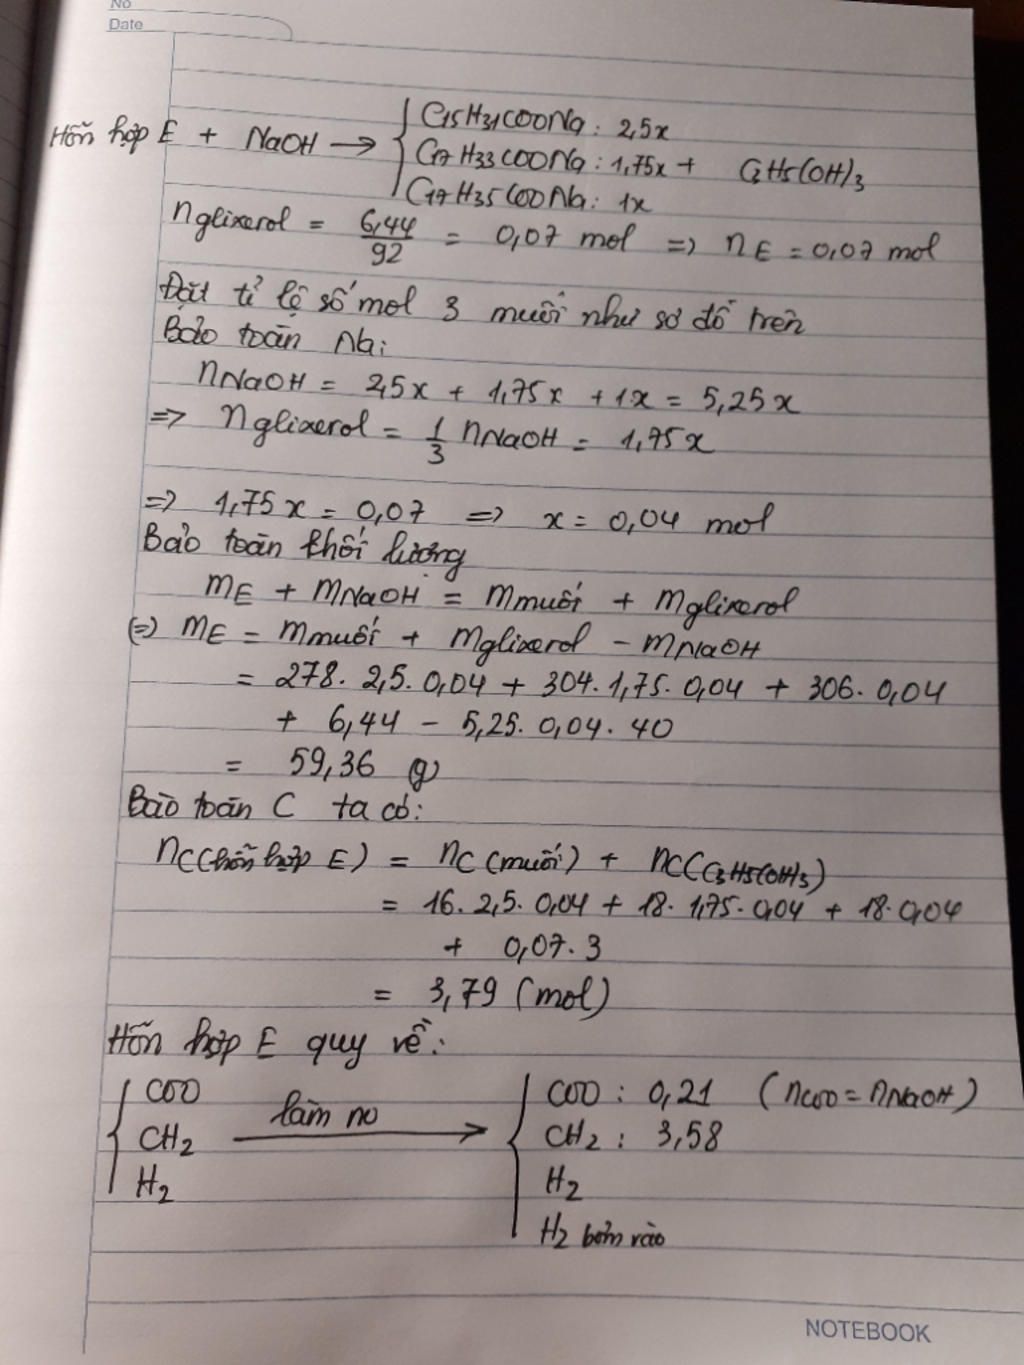 No
Date
Hỗn hợp E + NaOH → { C15H31COONa : 2,5x
C17H33COONa : 1,75x + C3H5(OH)3
C17H35COONa : 1x
nglixerol = 6,44/92 = 0,07 mol => nE = 0,07 mol
Đặt tỉ lệ số mol 3 muối như sơ đồ trên
Bảo toàn Na:
nNaOH = 2,5x + 1,75x + 1x = 5,25x
=> nglixerol = 1/3 nNaOH = 1,75x
=> 1,75x = 0,07 => x = 0,04 mol
Bảo toàn khối lượng
mE + mNaOH = mmuối + mglixerol
(=) mE = mmuối + mglixerol - mNaOH
= 278. 2,5. 0,04 + 304. 1,75. 0,04 + 306. 0,04
+ 6,44 - 5,25. 0,04. 40
= 59,36 (g)
Bảo toàn C ta có:
nC(hỗn hợp E) = nC(muối) + nC(C3H5(OH)3)
= 16. 2,5. 0,04 + 18. 1,75. 0,04 + 18. 0,04
+ 0,07. 3
= 3,79 (mol)
Hỗn hợp E quy về:
{ COO làm no → { COO : 0,21 (nCOO = nNaOH)
CH2 CH2 : 3,58
H2 H2
H2 bơm vào
NOTEBOOK